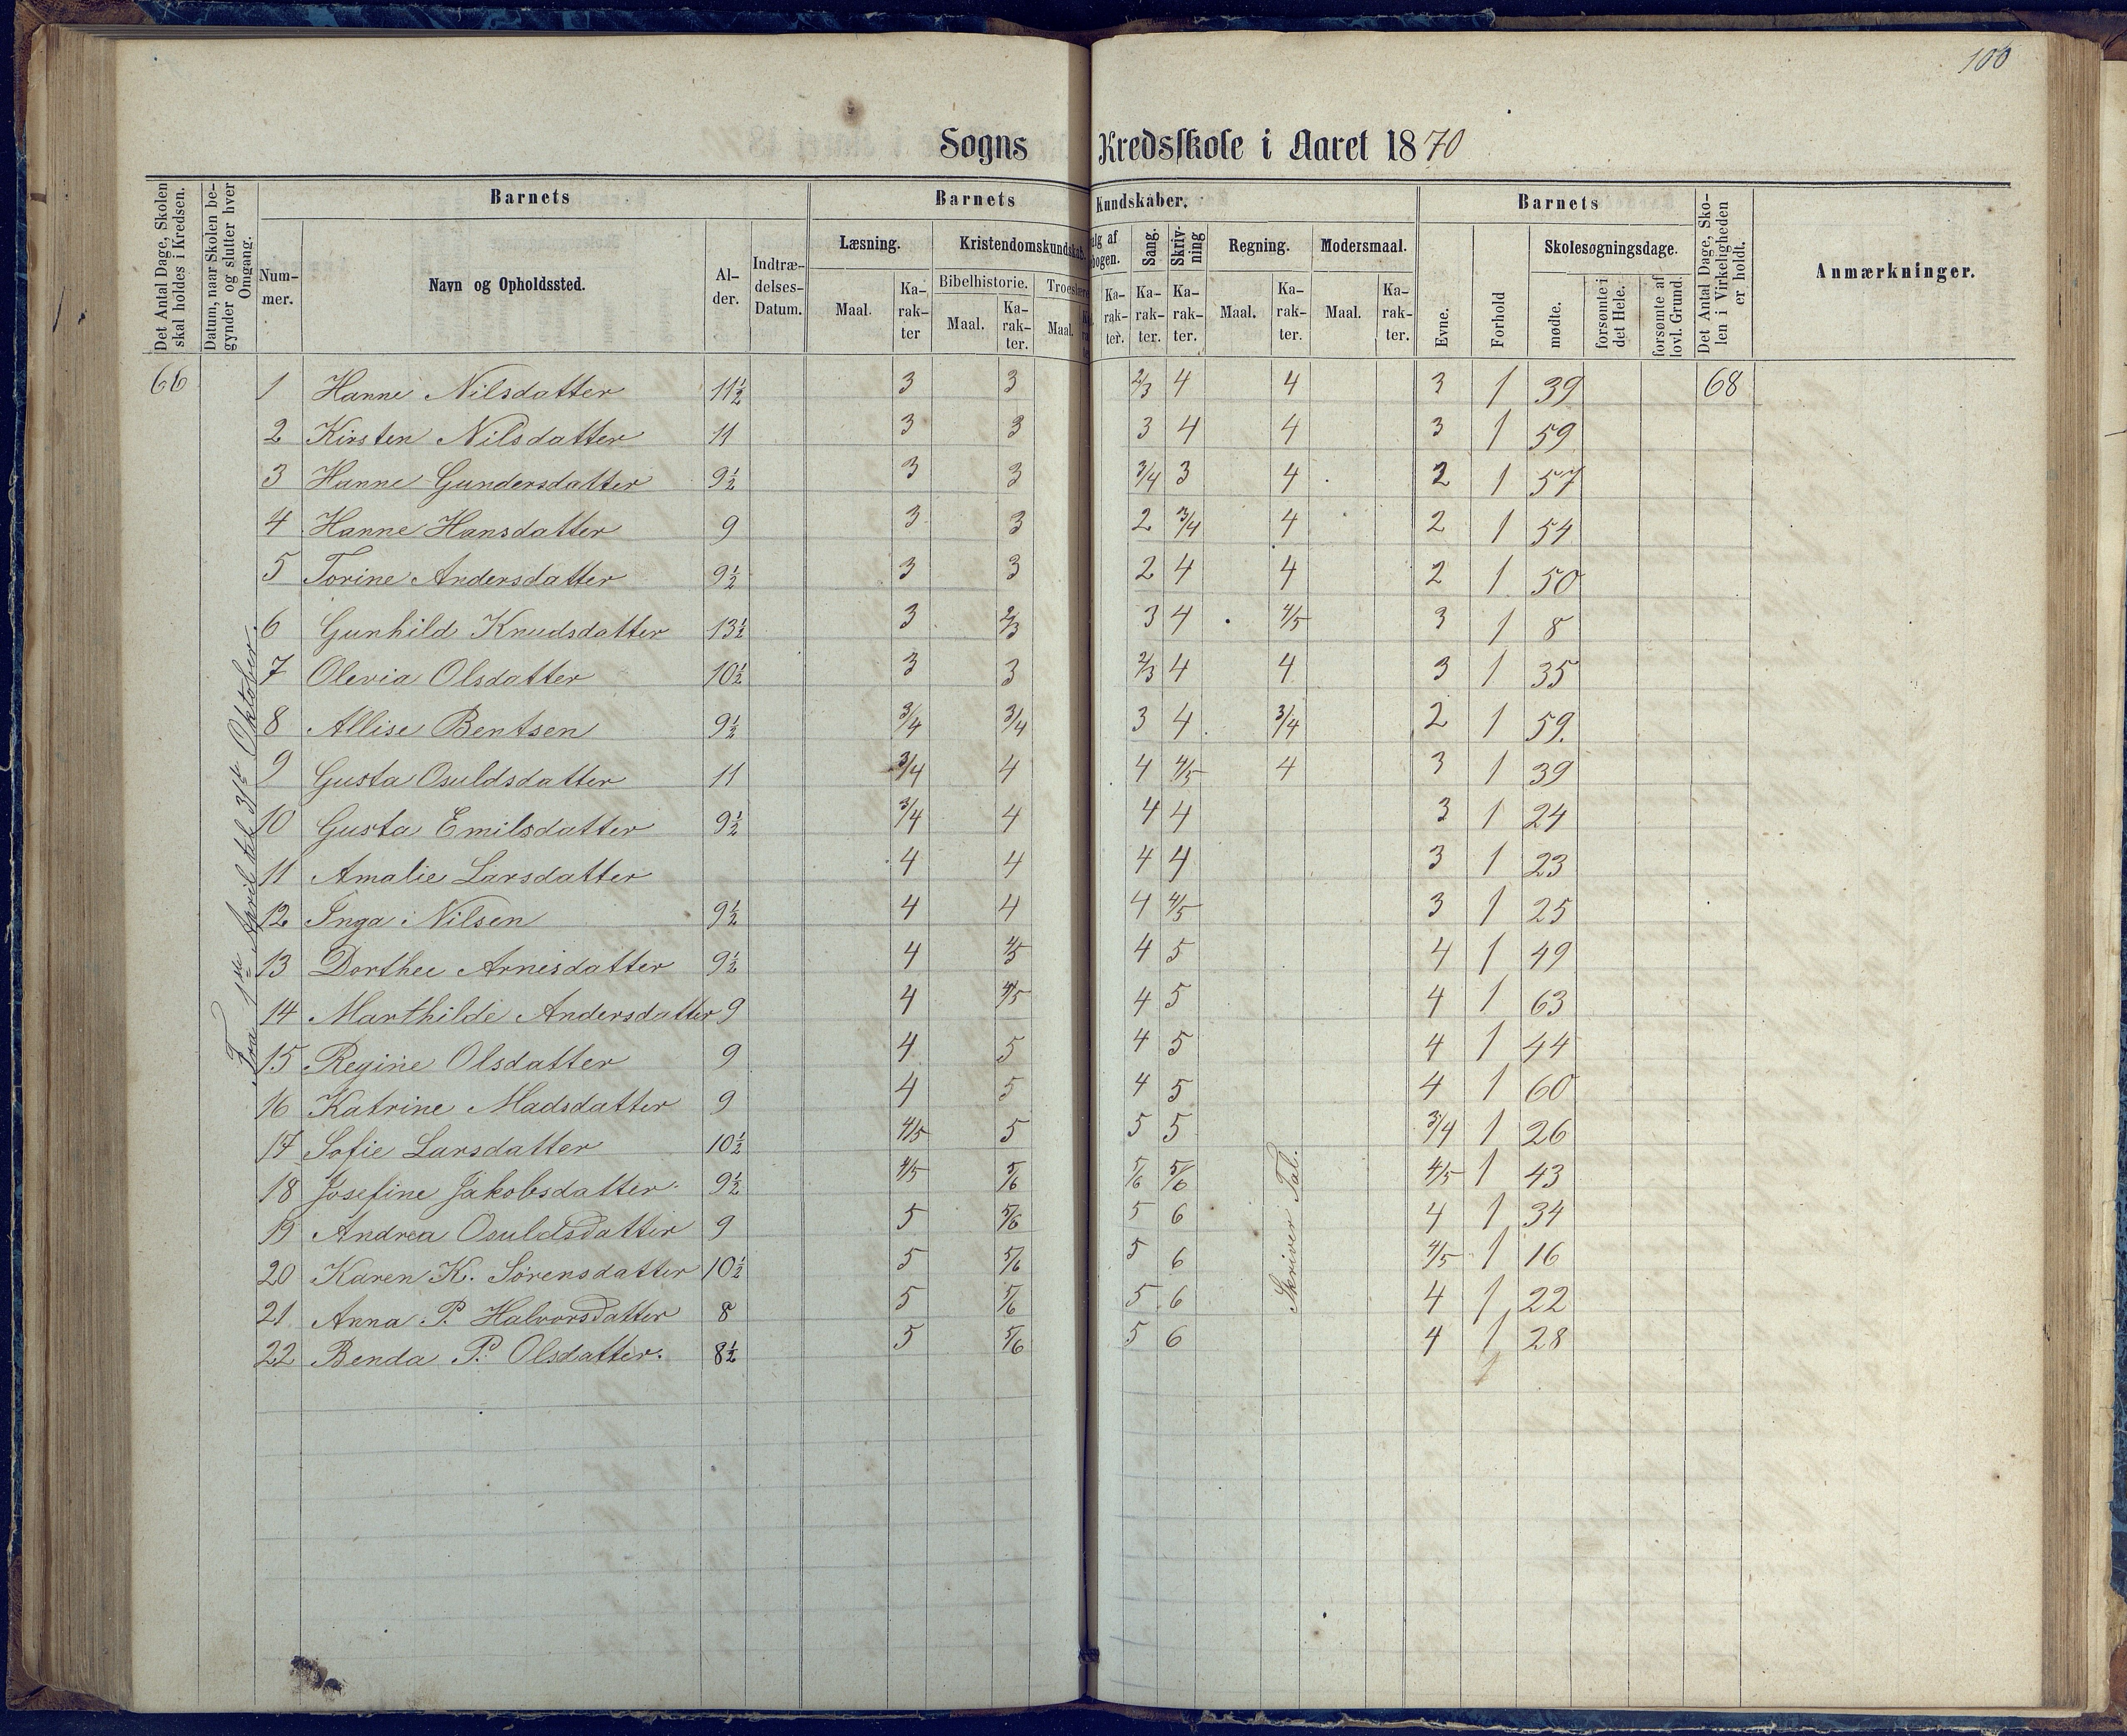 100
Sogns Kredsskole i Aaret 1870
Det Antal Dage, Skolen skal holdes i Kredsen.
Datum, naar Skolen begynder og slutter hver Omgang.
Barnets
Nummer.
Navn og Opholdssted.
Alder.
Indtrædelses-Datum.
Barnets Kundskaber.
Læsning.
Maal.
Karakter
Kristendomskundskab.
Bibelhistorie.
Maal.
Karakter.
Troeslære
Maal.
alg af
bogen.
Karakter.
Sang.
Karakter.
Skrivning
Karakter.
Regning.
Maal.
Karakter.
Modersmaal.
Maal.
Karakter.
Barnets
Evne.
Forhold
Skolesøgningsdage.
mødte.
forsømte i det Hele.
forsømte af lovl. Grund.
Det Antal Dage, Skolen i Virkeligheden er holdt.
Anmærkninger.
Fra 1ste April til 31te Oktober.
66 1 Hanne Nilsdatter 11½ 3 3 2/3 4 4 3 1 39 68
2 Kirsten Nilsdatter 11 3 3 3 4 4 3 1 59
3 Hanne Gundersdatter 9½ 3 3 3/4 3 4 2 1 57
4 Hanne Hansdatter 9 3 3 2 3/4 4 2 1 54
5 Torine Andersdatter 9½ 3 3 2 4 4 2 1 50
6 Gunhild Knudsdatter 13½ 3 2/3 3 4 4/5 3 1 8
7 Olevia Olsdatter 10½ 3 3 2/3 4 4 3 1 35
8 Allise Bentsen 9½ 3/4 3/4 3 4 3/4 2 1 59.
9 Gusta Osuldsdatter 11 3/4 4 4 4/5 4 3 1 39
10 Gusta Emilsdatter 9½ 3/4 4 4 4 3 1 24
11 Amalie Larsdatter 4 4 4 4 3 1 23
12 Inga Nilsen 9½ 4 4 4 4/5 3 1 25
13 Dorthee Arnesdatter 9½ 4 4/5 4 5 4 1 49
14 Marthilde Andersdatter 9 4 4/5 4 5 4 1 63
15 Regine Olsdatter 9 4 5 4 5 4 1 44
16 Katrine Madsdatter 9 4 5 4 5 4 1 60
17 Sofie Larsdatter 10½ 4/5 5 5 5 3/4 1 26
18 Josefine Jakobsdatter 9½ 4/5 5/6 5/6 5/6 4/5 1 43
19 Andrea Osuldsdatter 9 5 5/6 5 6 4 1 34
20 Karen K. Sørensdatter 10½ 5 5/6 5 6 4/5 1 16
21 Anna P. Halvorsdatter 8 5 5/6 5 6 4 1 22
22 Benda P. Olsdatter. 8½ 5 5/6 5 6 4 1 28
Skriver Tal.